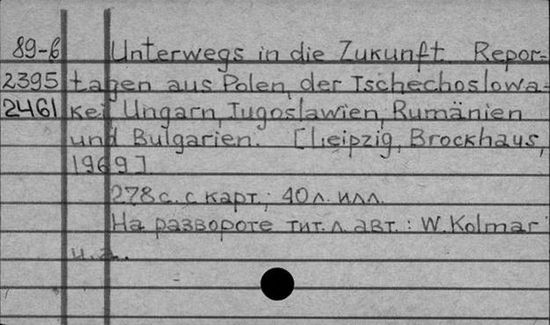 89-6 Unterwegs in die Zukunft. Repor-
2395 tagen aus Polen, der Tschechoslowa-
2461 kei Ungarn, Jugoslawien, Rumänien
und Bulgarien. [Leipzig, Brockhaus,
1969]
278 с. с карт.; 40 л. илл.
На развороте тит. л. авт.: W. Kolmar
u.a.